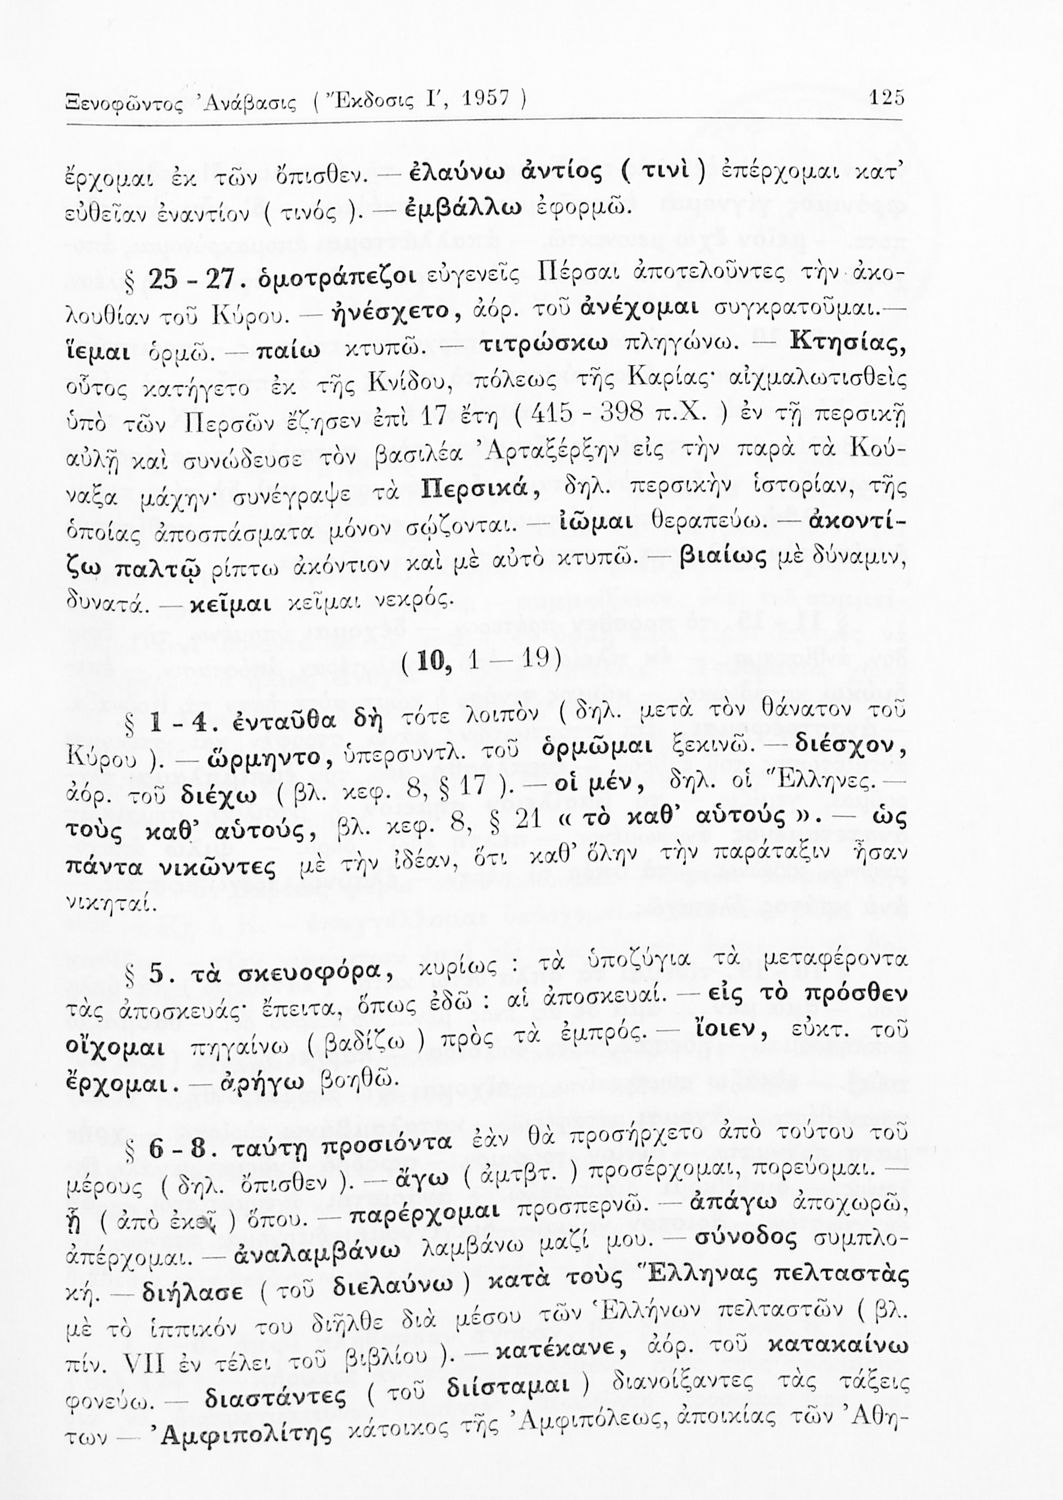 Ξενοφῶντος Ἀνάβασις ( Ἔκδοσις Ι', 1957 ) 125
ἔρχομαι ἐκ τῶν ὄπισθεν. — ἐλαύνω ἀντίος ( τινὶ ) ἐπέρχομαι κατ'
εὐθεῖαν ἐναντίον ( τινός ). — ἐμβάλλω ἐφορμῶ.
§ 25 - 27. ὁμοτράπεζοι εὐγενεῖς Πέρσαι ἀποτελοῦντες τὴν ἀκο-
λουθίαν τοῦ Κύρου. — ἠνέσχετο, ἀόρ. τοῦ ἀνέχομαι συγκρατοῦμαι.—
ἵεμαι ὁρμῶ. — παίω κτυπῶ. — τιτρώσκω πληγώνω. — Κτησίας,
οὗτος κατήγετο ἐκ τῆς Κνίδου, πόλεως τῆς Καρίας· αἰχμαλωτισθεὶς
ὑπὸ τῶν Περσῶν ἔζησεν ἐπὶ 17 ἔτη ( 415 - 398 π.Χ. ) ἐν τῇ περσικῇ
αὐλῇ καὶ συνώδευσε τὸν βασιλέα Ἀρταξέρξην εἰς τὴν παρὰ τὰ Κού-
ναξα μάχην· συνέγραψε τὰ Περσικά, δηλ. περσικὴν ἱστορίαν, τῆς
ὁποίας ἀποσπάσματα μόνον σῴζονται. — ἰῶμαι θεραπεύω. — ἀκοντί-
ζω παλτῷ ρίπτω ἀκόντιον καὶ μὲ αὐτὸ κτυπῶ. — βιαίως μὲ δύναμιν,
δυνατά. — κεῖμαι κεῖμαι νεκρός.
( 10, 1 — 19)
§ 1 - 4. ἐνταῦθα δὴ τότε λοιπὸν ( δηλ. μετὰ τὸν θάνατον τοῦ
Κύρου ). — ὥρμηντο, ὑπερσυντλ. τοῦ ὁρμῶμαι ξεκινῶ. — διέσχον,
ἀόρ. τοῦ διέχω ( βλ. κεφ. 8, § 17 ). — οἱ μέν, δηλ. οἱ Ἕλληνες. —
τοὺς καθ' αὑτούς, βλ. κεφ. 8, § 21 « τὸ καθ' αὑτούς ». — ὡς
πάντα νικῶντες μὲ τὴν ἰδέαν, ὅτι καθ' ὅλην τὴν παράταξιν ἦσαν
νικηταί.
§ 5. τὰ σκευοφόρα, κυρίως : τὰ ὑποζύγια τὰ μεταφέροντα
τὰς ἀποσκευάς· ἔπειτα, ὅπως ἐδῶ : αἱ ἀποσκευαί. — εἰς τὸ πρόσθεν
οἴχομαι πηγαίνω ( βαδίζω ) πρὸς τὰ ἐμπρός. — ἴοιεν, εὐκτ. τοῦ
ἔρχομαι. — ἀρήγω βοηθῶ.
§ 6 - 8. ταύτῃ προσιόντα ἐὰν θὰ προσήρχετο ἀπὸ τούτου τοῦ
μέρους ( δηλ. ὄπισθεν ). — ἄγω ( ἀμτβτ. ) προσέρχομαι, πορεύομαι. —
ᾗ ( ἀπὸ ἐκεῖ ) ὅπου. — παρέρχομαι προσπερνῶ. — ἀπάγω ἀποχωρῶ,
ἀπέρχομαι. — ἀναλαμβάνω λαμβάνω μαζί μου. — σύνοδος συμπλο-
κή. — διήλασε ( τοῦ διελαύνω ) κατὰ τοὺς Ἕλληνας πελταστὰς
μὲ τὸ ἱππικόν του διῆλθε διὰ μέσου τῶν Ἑλλήνων πελταστῶν ( βλ.
πίν. VII ἐν τέλει τοῦ βιβλίου ). — κατέκανε, ἀόρ. τοῦ κατακαίνω
φονεύω. — διαστάντες ( τοῦ διίσταμαι ) διανοίξαντες τὰς τάξεις
των — Ἀμφιπολίτης κάτοικος τῆς Ἀμφιπόλεως, ἀποικίας τῶν Ἀθη-